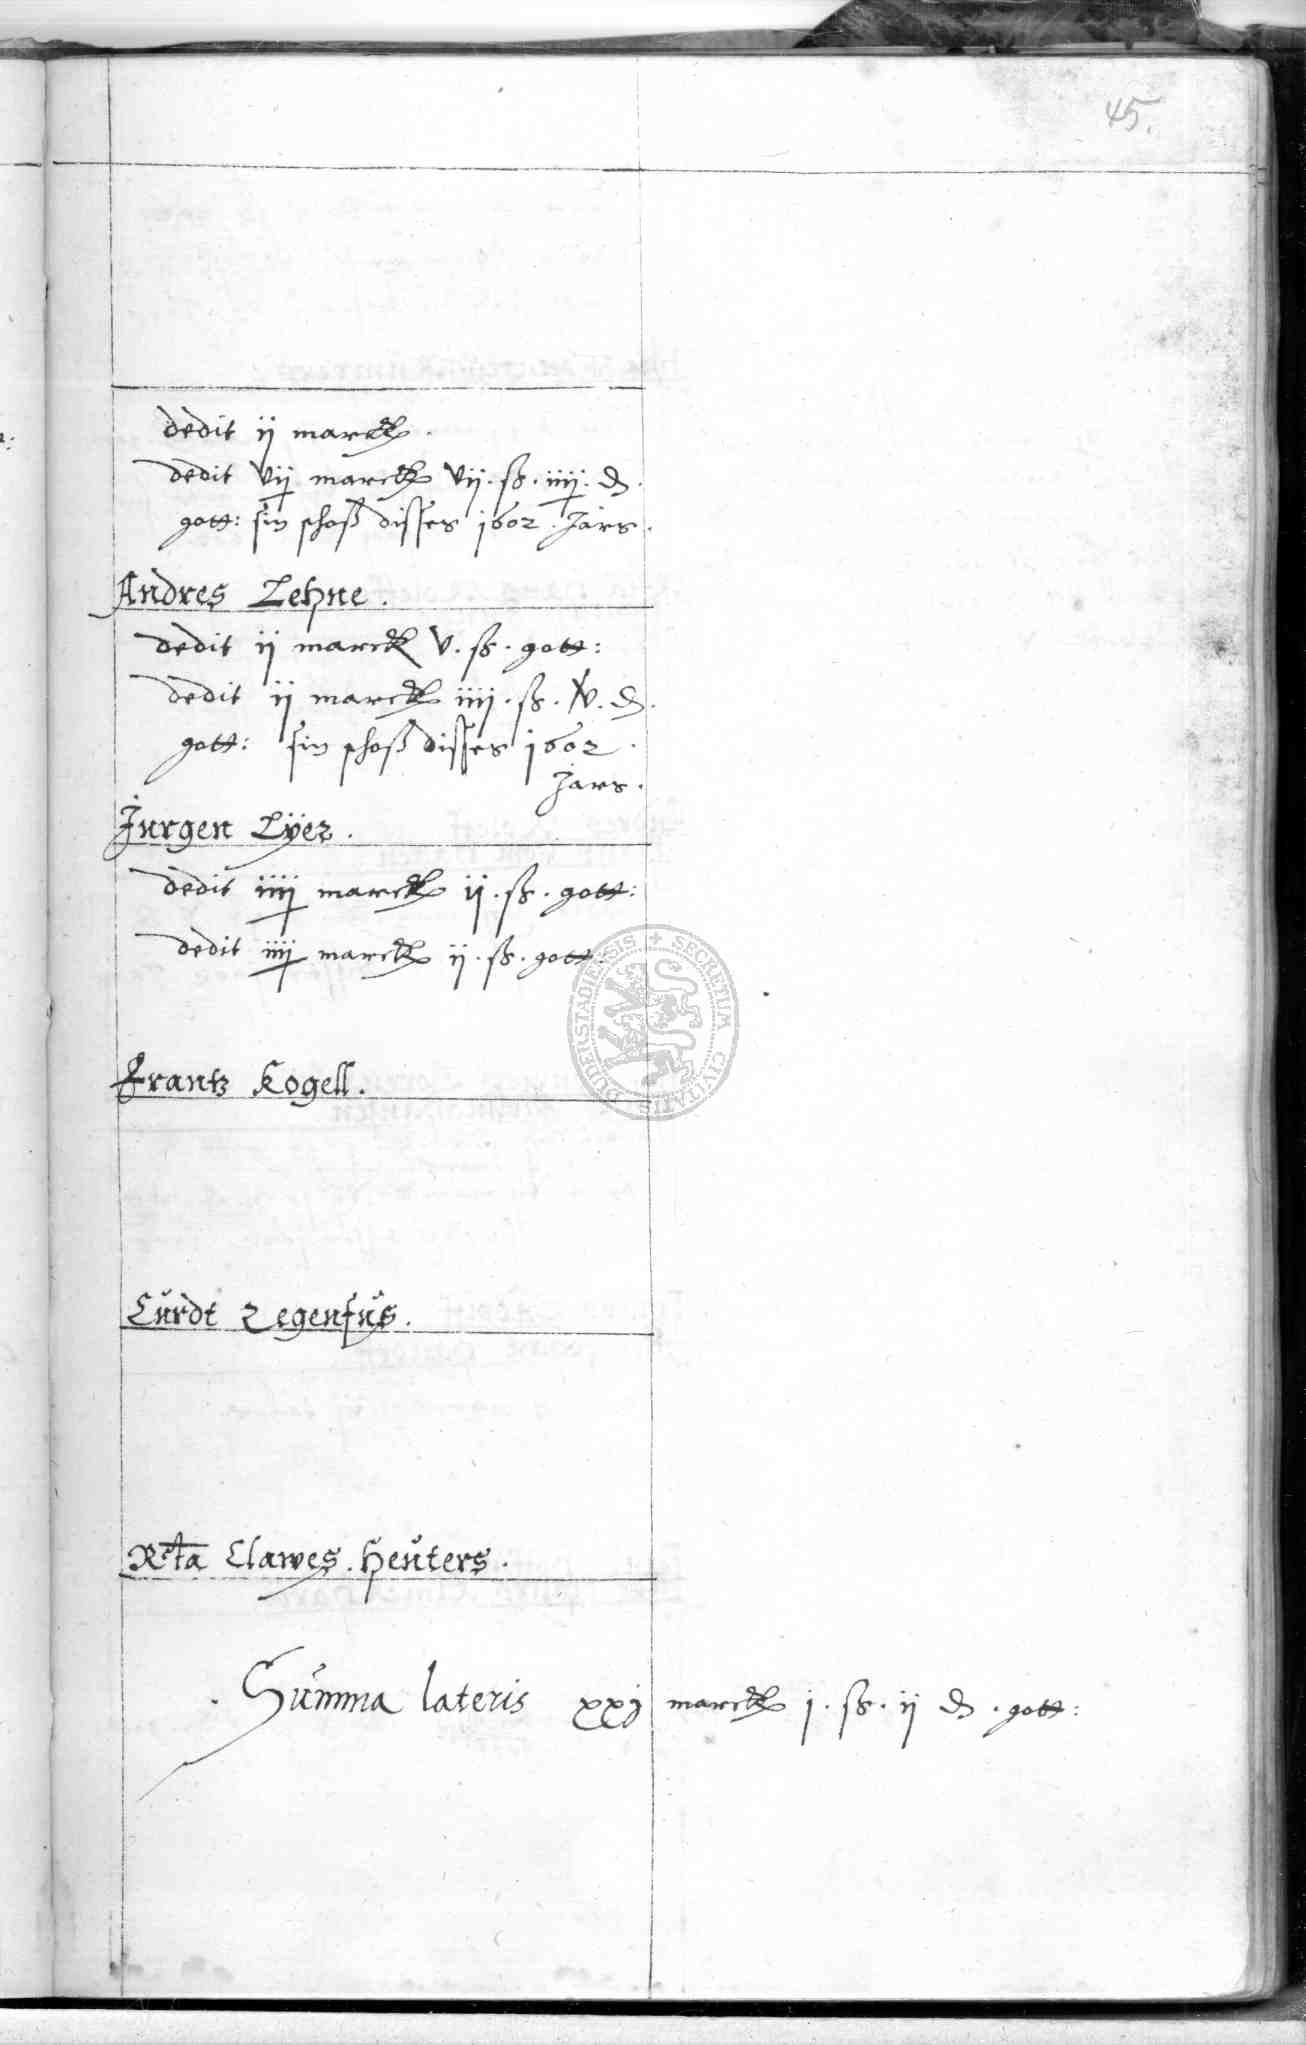 45.
dedit ij marck.
dedit vij marck vij. ß. iiij. d.
gott: sin schoß disses 1602. Jars.
Andres Zehne.
dedit ij marck v. ß. gott:
dedit ij marck iiij. ß. v. d.
gott: sin schoß disses 1602.
Jars.
Jurgen Lÿer.
dedit iiij marck ij. ß. gott:
dedit iiij marck ij. ß. gott:
SECRETUM CIVITATIS DUDERSTADIENSIS
Frantz Kogell.
Curdt Zegenfus.
Rcta Clawes. Heuters.
Summa lateris xxj marck j. ß. ij d. gott: